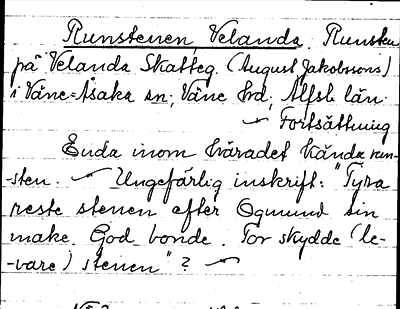 Runstenen, Velanda. Runsten
på Velanda Skatteg. (August Jakobssons)
i Väne-Åsaka sn; Väne hd, Älfsb. län.
Fortsättning
Enda inom häradet kända run-
-sten. Ungefärlig inskrift: "Tyra
reste stenen efter Ogmund sin
make. God bonde. Tor skydde (le-
-vare) stenen"?